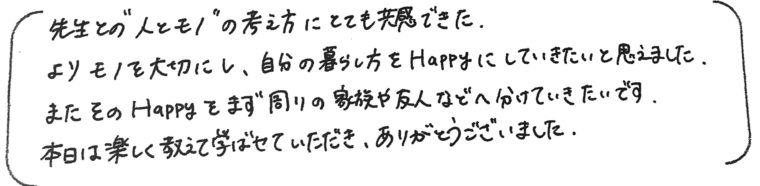 先生との"人とモノ"の考え方にとても共感できた.
よりモノを大切にし、自分の暮らし方をHappyにしていきたいと思えました.
またそのHappyをまず周りの家族や友人などへ分けていきたいです.
本日は楽しく教えて学ばせていただき、ありがとうございました.